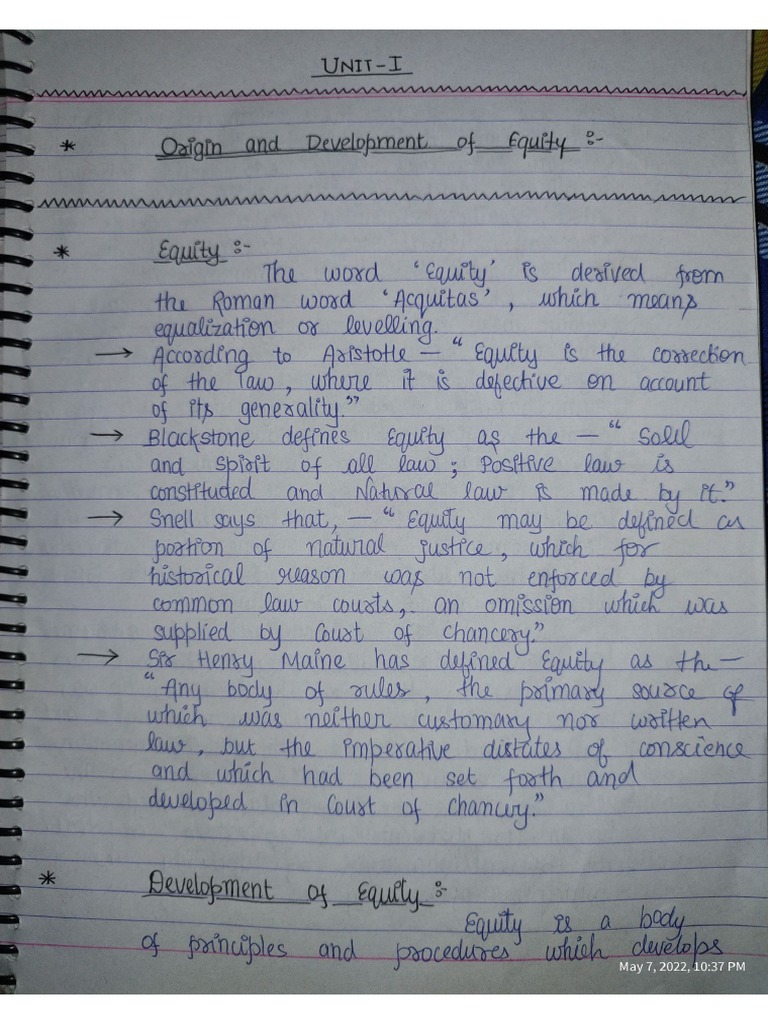 UNIT-I
* Origin and Development of Equity :-
* Equity :-
The word 'Equity' is derived from
the Roman word 'Acquitas', which means
equalization or levelling.
→ According to Aristotle — "Equity is the correction
of the law, where it is defective on account
of its generality."
→ Blackstone defines Equity as the — "Soul
and Spirit of all law; Positive law is
constituded and Natural law is made by it."
→ Snell says that, — "Equity may be defined as
portion of natural justice, which for
historical reason was not enforced by
common law courts, an omission which was
supplied by Court of chancery."
→ Sir Henry Maine has defined Equity as the —
"Any body of rules, the primary source of
which was neither customary nor written
law, but the imperative distates of conscience
and which had been set forth and
developed in Court of chancery."
* Development of Equity :-
Equity is a body
of principles and procedures which develops
May 7, 2022, 10:37 PM